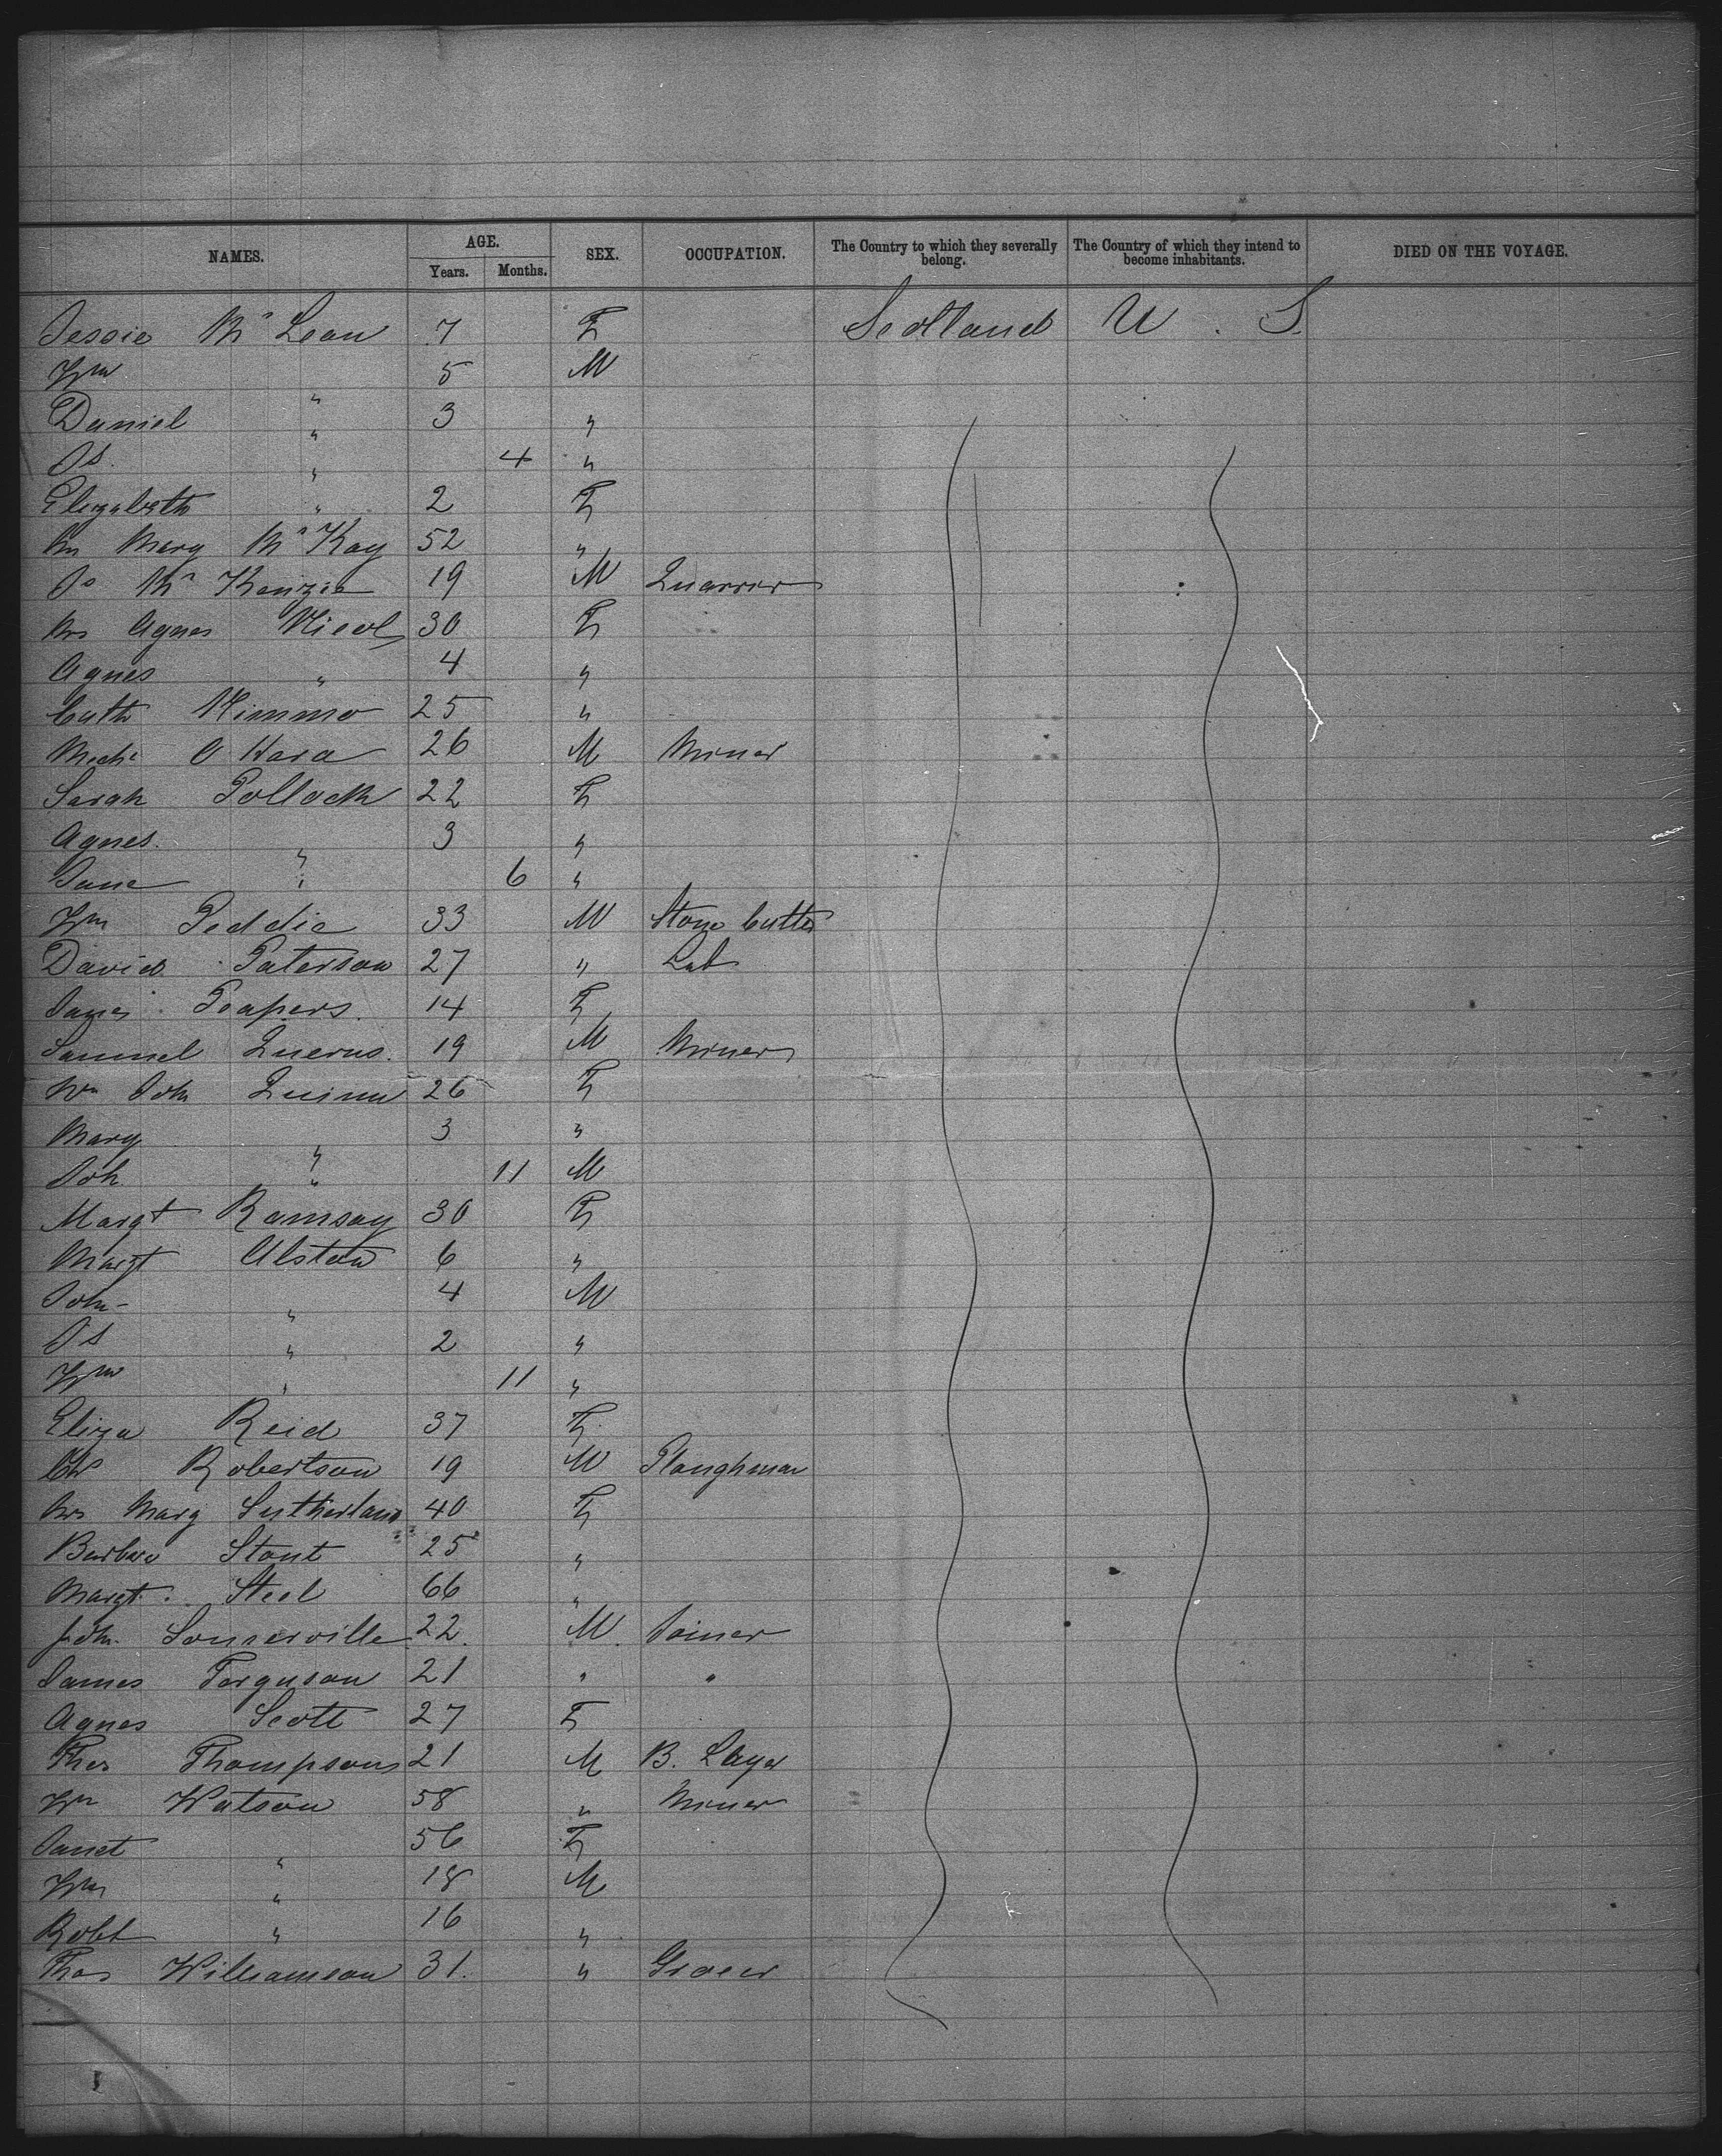 NAMES. AGE. SEX. OCCUPATION. The Country to which they severally belong. The Country of which they intend to become inhabitants. DIED ON THE VOYAGE.
Years. Months.
Jessie Mc Lean 7 F Scotland U. S.
Wm " 5 M
Daniel " 3 "
Js. " 4 "
Elizabeth " 2 F
Mrs Mary Mc Kay 52 "
Js Mc Kenzie 19 M Quarrier
Mrs Agnes Nicol 30 F
Agnes " 4 "
Cath Nimmo 25 "
Michl O Hara 26 M Miner
Sarah Pollock 22 F
Agnes. " 3 "
Jane " 6 "
Wm Peddie 33 M Stone Cutter
David Paterson 27 " Lab
14 F
Samuel 19 M Miner
John Quinn 26 F
Mary " 3 "
Joh " 11 M
Margt Ramsay 30 F
Margt Alston 6 "
John " 4 M
Js " 2 "
Wm " 11 "
Eliza Reid 37 F
Chs Robertson 19 M Ploughman
Mrs Mary Sutherland 40 F
Barbara Stout 25 "
Margt. Steel 66 "
John Somerville 22. M. Joiner
James Ferguson 21 " "
Agnes Scott 27 F
Thos Thompson 21 M B. Layer
Wm Watson 58 " Miner
Janet " 56 F
Wm " 18 M
Robt " 16 "
Thos Williamson 31. " Grocer